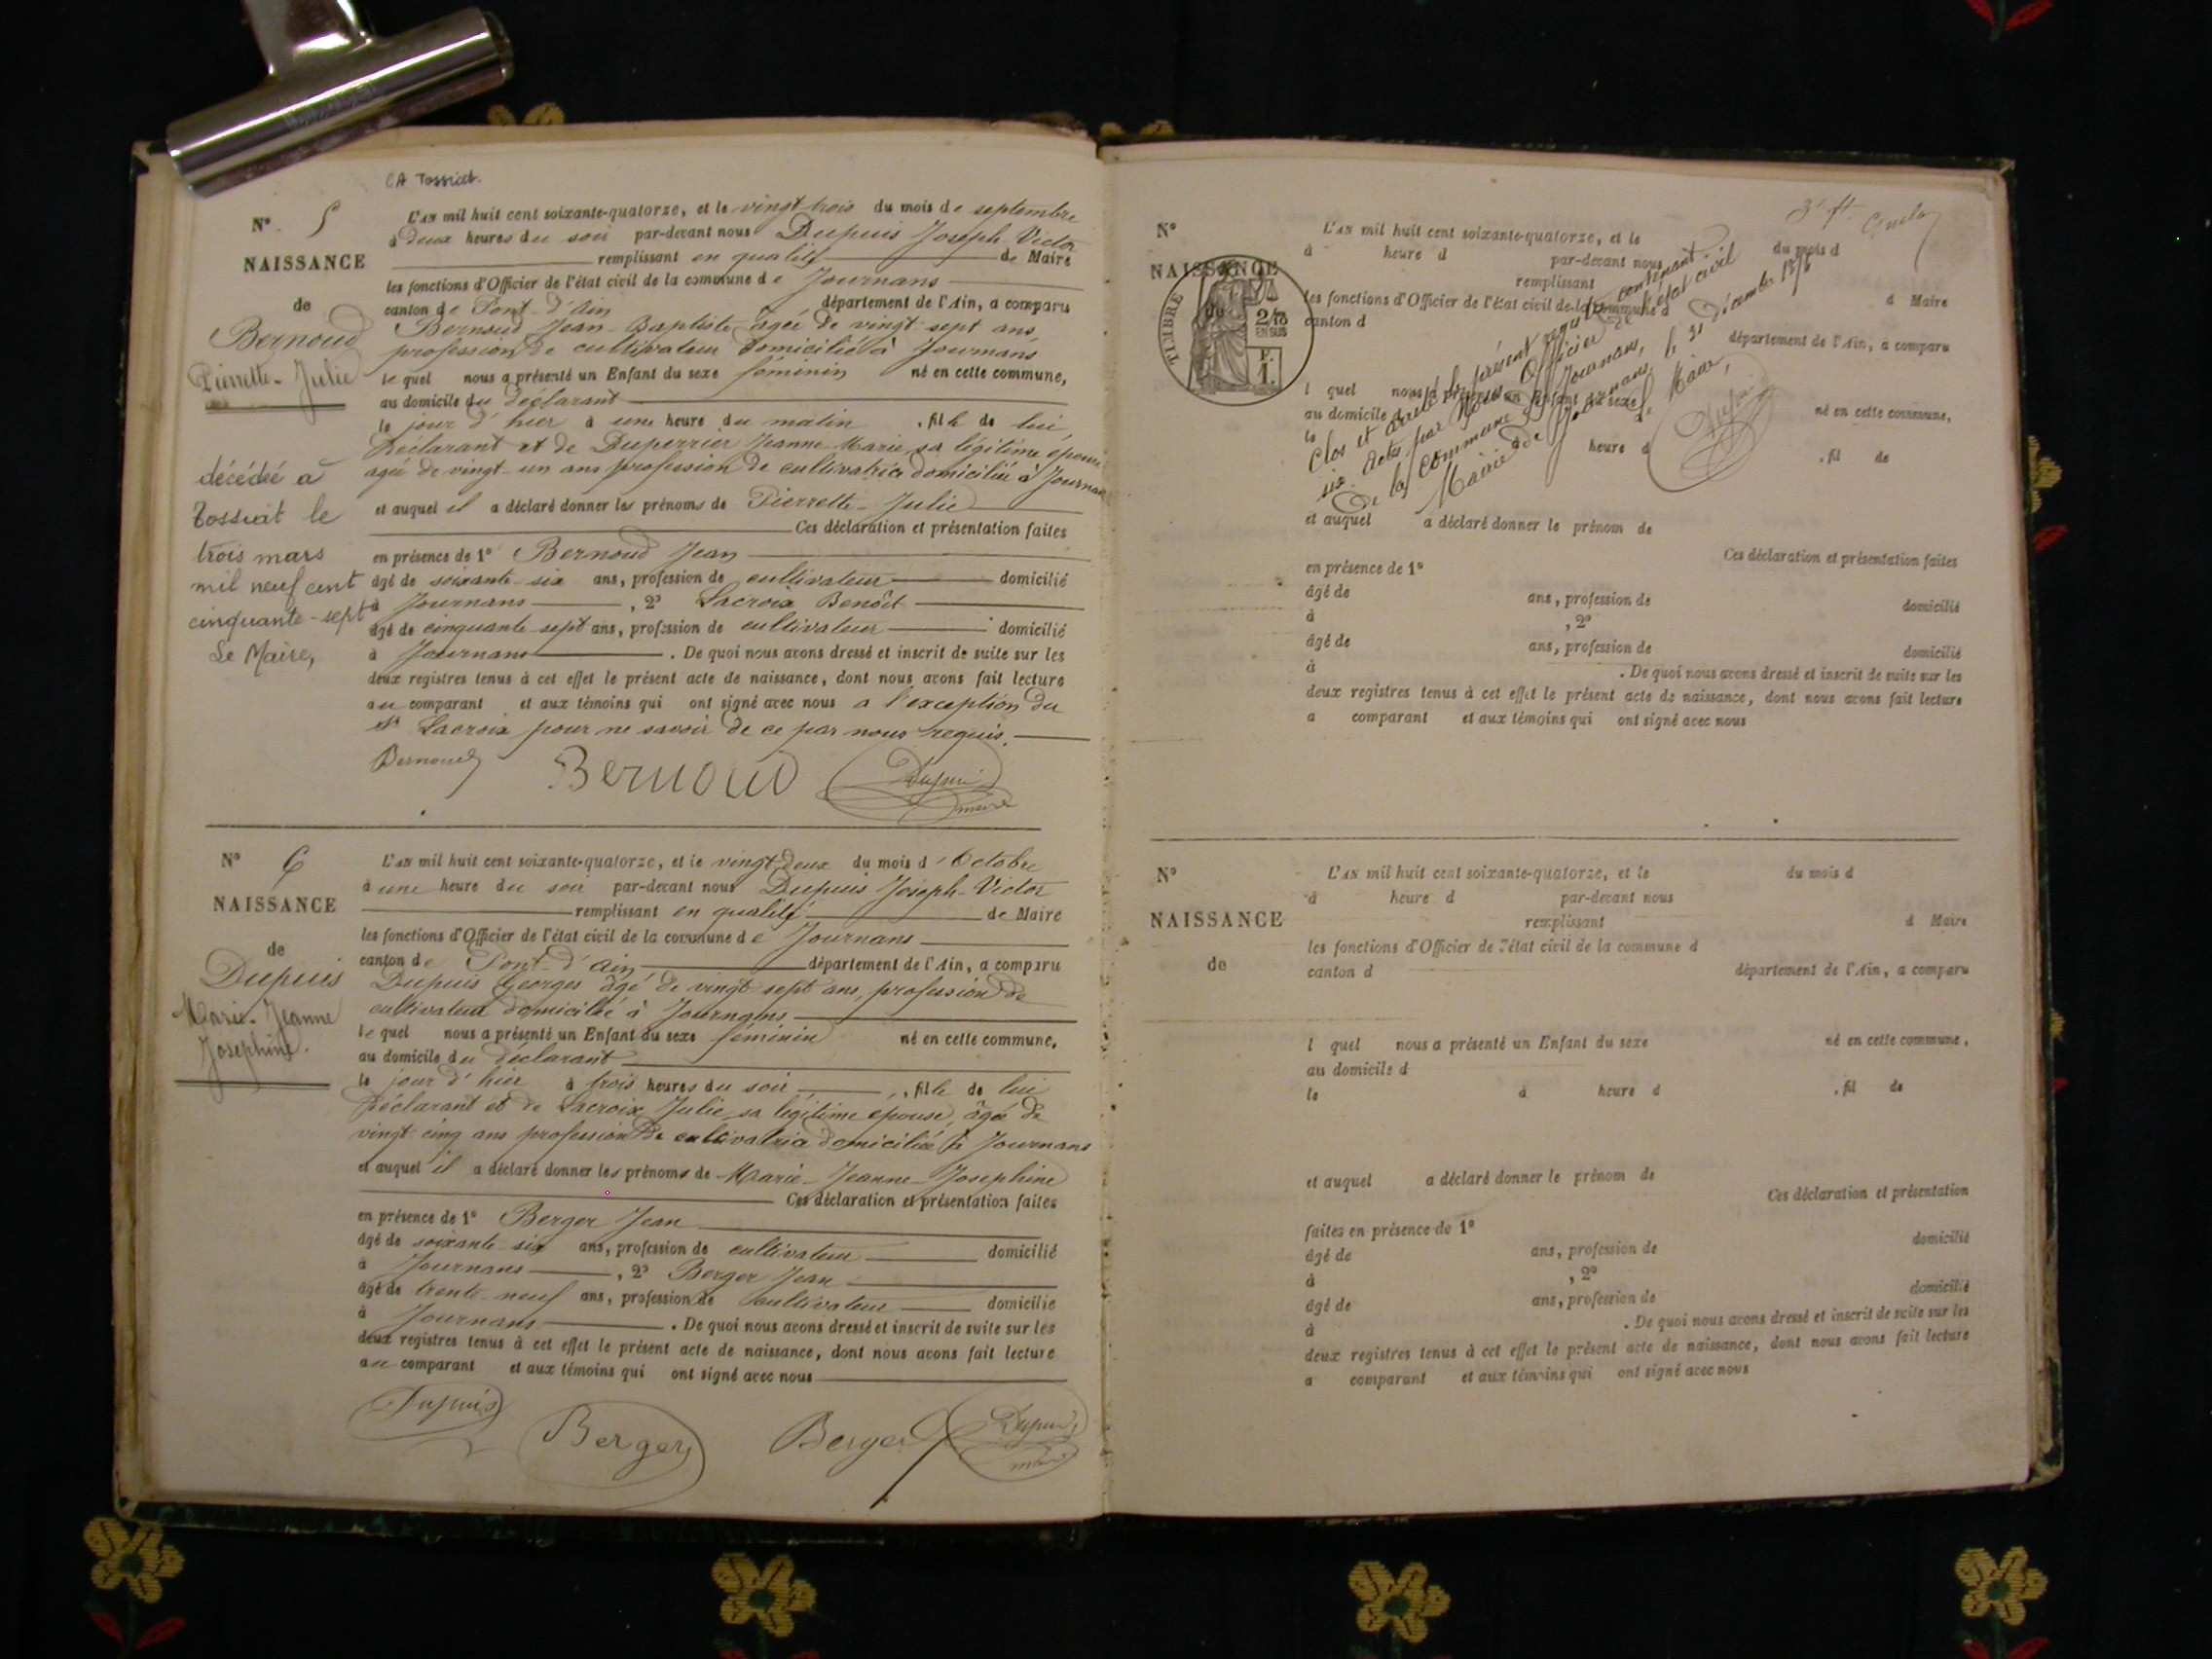 CA Tossiat.
N° 5
NAISSANCE
de
Bernoud
Pierrette-Julie
décédée à
Tossiat le
trois mars
mil neuf cent
cinquante-sept
Le Maire,
L'AN mil huit cent soixante-quatorze, et le vingt trois du mois de septembre
à deux heures du soir par-devant nous Dupuis Joseph Victor
remplissant en qualité de Maire
les fonctions d'Officier de l'état civil de la commune de Journans
canton de Pont-d'Ain département de l'Ain, a comparu
Bernoud Jean-Baptiste âgé de vingt-sept ans,
profession de cultivateur domicilié à Journans
lequel nous a présenté un Enfant du sexe féminin né en cette commune,
au domicile du déclarant
le jour d'hier à une heure du matin, fille de lui
Déclarant et de Duperrier Jeanne Marie sa légitime épouse
agée de vingt-un ans profession de cultivatrice domiciliée à Journans
et auquel il a déclaré donner les prénoms de Pierrette-Julie
Ces déclaration et présentation faites
en présence de 1° Bernoud Jean
âgé de soixante-six ans, profession de cultivateur domicilié
à Journans, 2° Lacroix Benoît
âgé de cinquante-sept ans, profession de cultivateur domicilié
à Journans. De quoi nous avons dressé et inscrit de suite sur les
deux registres tenus à cet effet le présent acte de naissance, dont nous avons fait lecture
au comparant et aux témoins qui ont signé avec nous a l'exception du
Sr Lacroix pour ne savoir de ce par nous requis.
Bernoud Bernoud Dupuis
maire
N° 6
NAISSANCE
de
Dupuis
Marie-Jeanne
Josephine.
L'AN mil huit cent soixante-quatorze, et le vingt-deux du mois d'Octobre
à une heure du soir par-devant nous Dupuis Joseph-Victor
remplissant en qualité de Maire
les fonctions d'Officier de l'état civil de la commune de Journans
canton de Pont-d'Ain département de l'Ain, a comparu
Dupuis Georges âgé de vingt-sept ans, profession de
cultivateur domicilié à Journans
lequel nous a présenté un Enfant du sexe féminin né en cette commune,
au domicile du déclarant
le jour d'hier à trois heures du soir, fille de lui
Déclarant et de Lacroix Julie sa légitime épouse, âgée de
vingt-cinq ans profession de cultivatrice domiciliée à Journans
et auquel il a déclaré donner les prénoms de Marie-Jeanne-Josephine
Ces déclaration et présentation faites
en présence de 1° Berger Jean
âgé de soixante-six ans, profession de cultivateur domicilié
à Journans, 2° Berger Jean
âgé de trente-neuf ans, profession de cultivateur domicilié
à Journans. De quoi nous avons dressé et inscrit de suite sur les
deux registres tenus à cet effet le présent acte de naissance, dont nous avons fait lecture
au comparant et aux témoins qui ont signé avec nous
Dupuis Berger Berger Dupuis
maire
N°
NAISSANCE
de
TIMBRE
2/10
EN SUS
F.
1.
L'AN mil huit cent soixante-quatorze, et le du mois d
à heure d par-devant nous
remplissant d Maire
les fonctions d'Officier de l'état civil de la commune d
canton d département de l'Ain, a comparu
l quel nous a présenté un Enfant du sexe né en cette commune,
au domicile d
le heure d , fil de
Clos et arrêté le présent contenant
six actes par Nous Officier de l'état civil
De la commune de Journans,
Mairie de Journans, le 31 Décembre
Le Maire,
Dupuis
et auquel a déclaré donner le prénom de
Ces déclaration et présentation faites
en présence de 1°
âgé de ans, profession de domicilié
à , 2°
âgé de ans, profession de domicilié
à . De quoi nous avons dressé et inscrit de suite sur les
deux registres tenus à cet effet le présent acte de naissance, dont nous avons fait lecture
a comparant et aux témoins qui ont signé avec nous
N°
NAISSANCE
de
L'AN mil huit cent soixante-quatorze, et le du mois d
à heure d par-devant nous
remplissant d Maire
les fonctions d'Officier de l'état civil de la commune d
canton d département de l'Ain, a comparu
l quel nous a présenté un Enfant du sexe né en cette commune,
au domicile d
le à heure d , fil de
et auquel a déclaré donner le prénom de
Ces déclaration et présentation
faites en présence de 1°
âgé de ans, profession de domicilié
à , 2°
âgé de ans, profession de domicilié
à . De quoi nous avons dressé et inscrit de suite sur les
deux registres tenus à cet effet le présent acte de naissance, dont nous avons fait lecture
a comparant et aux témoins qui ont signé avec nous